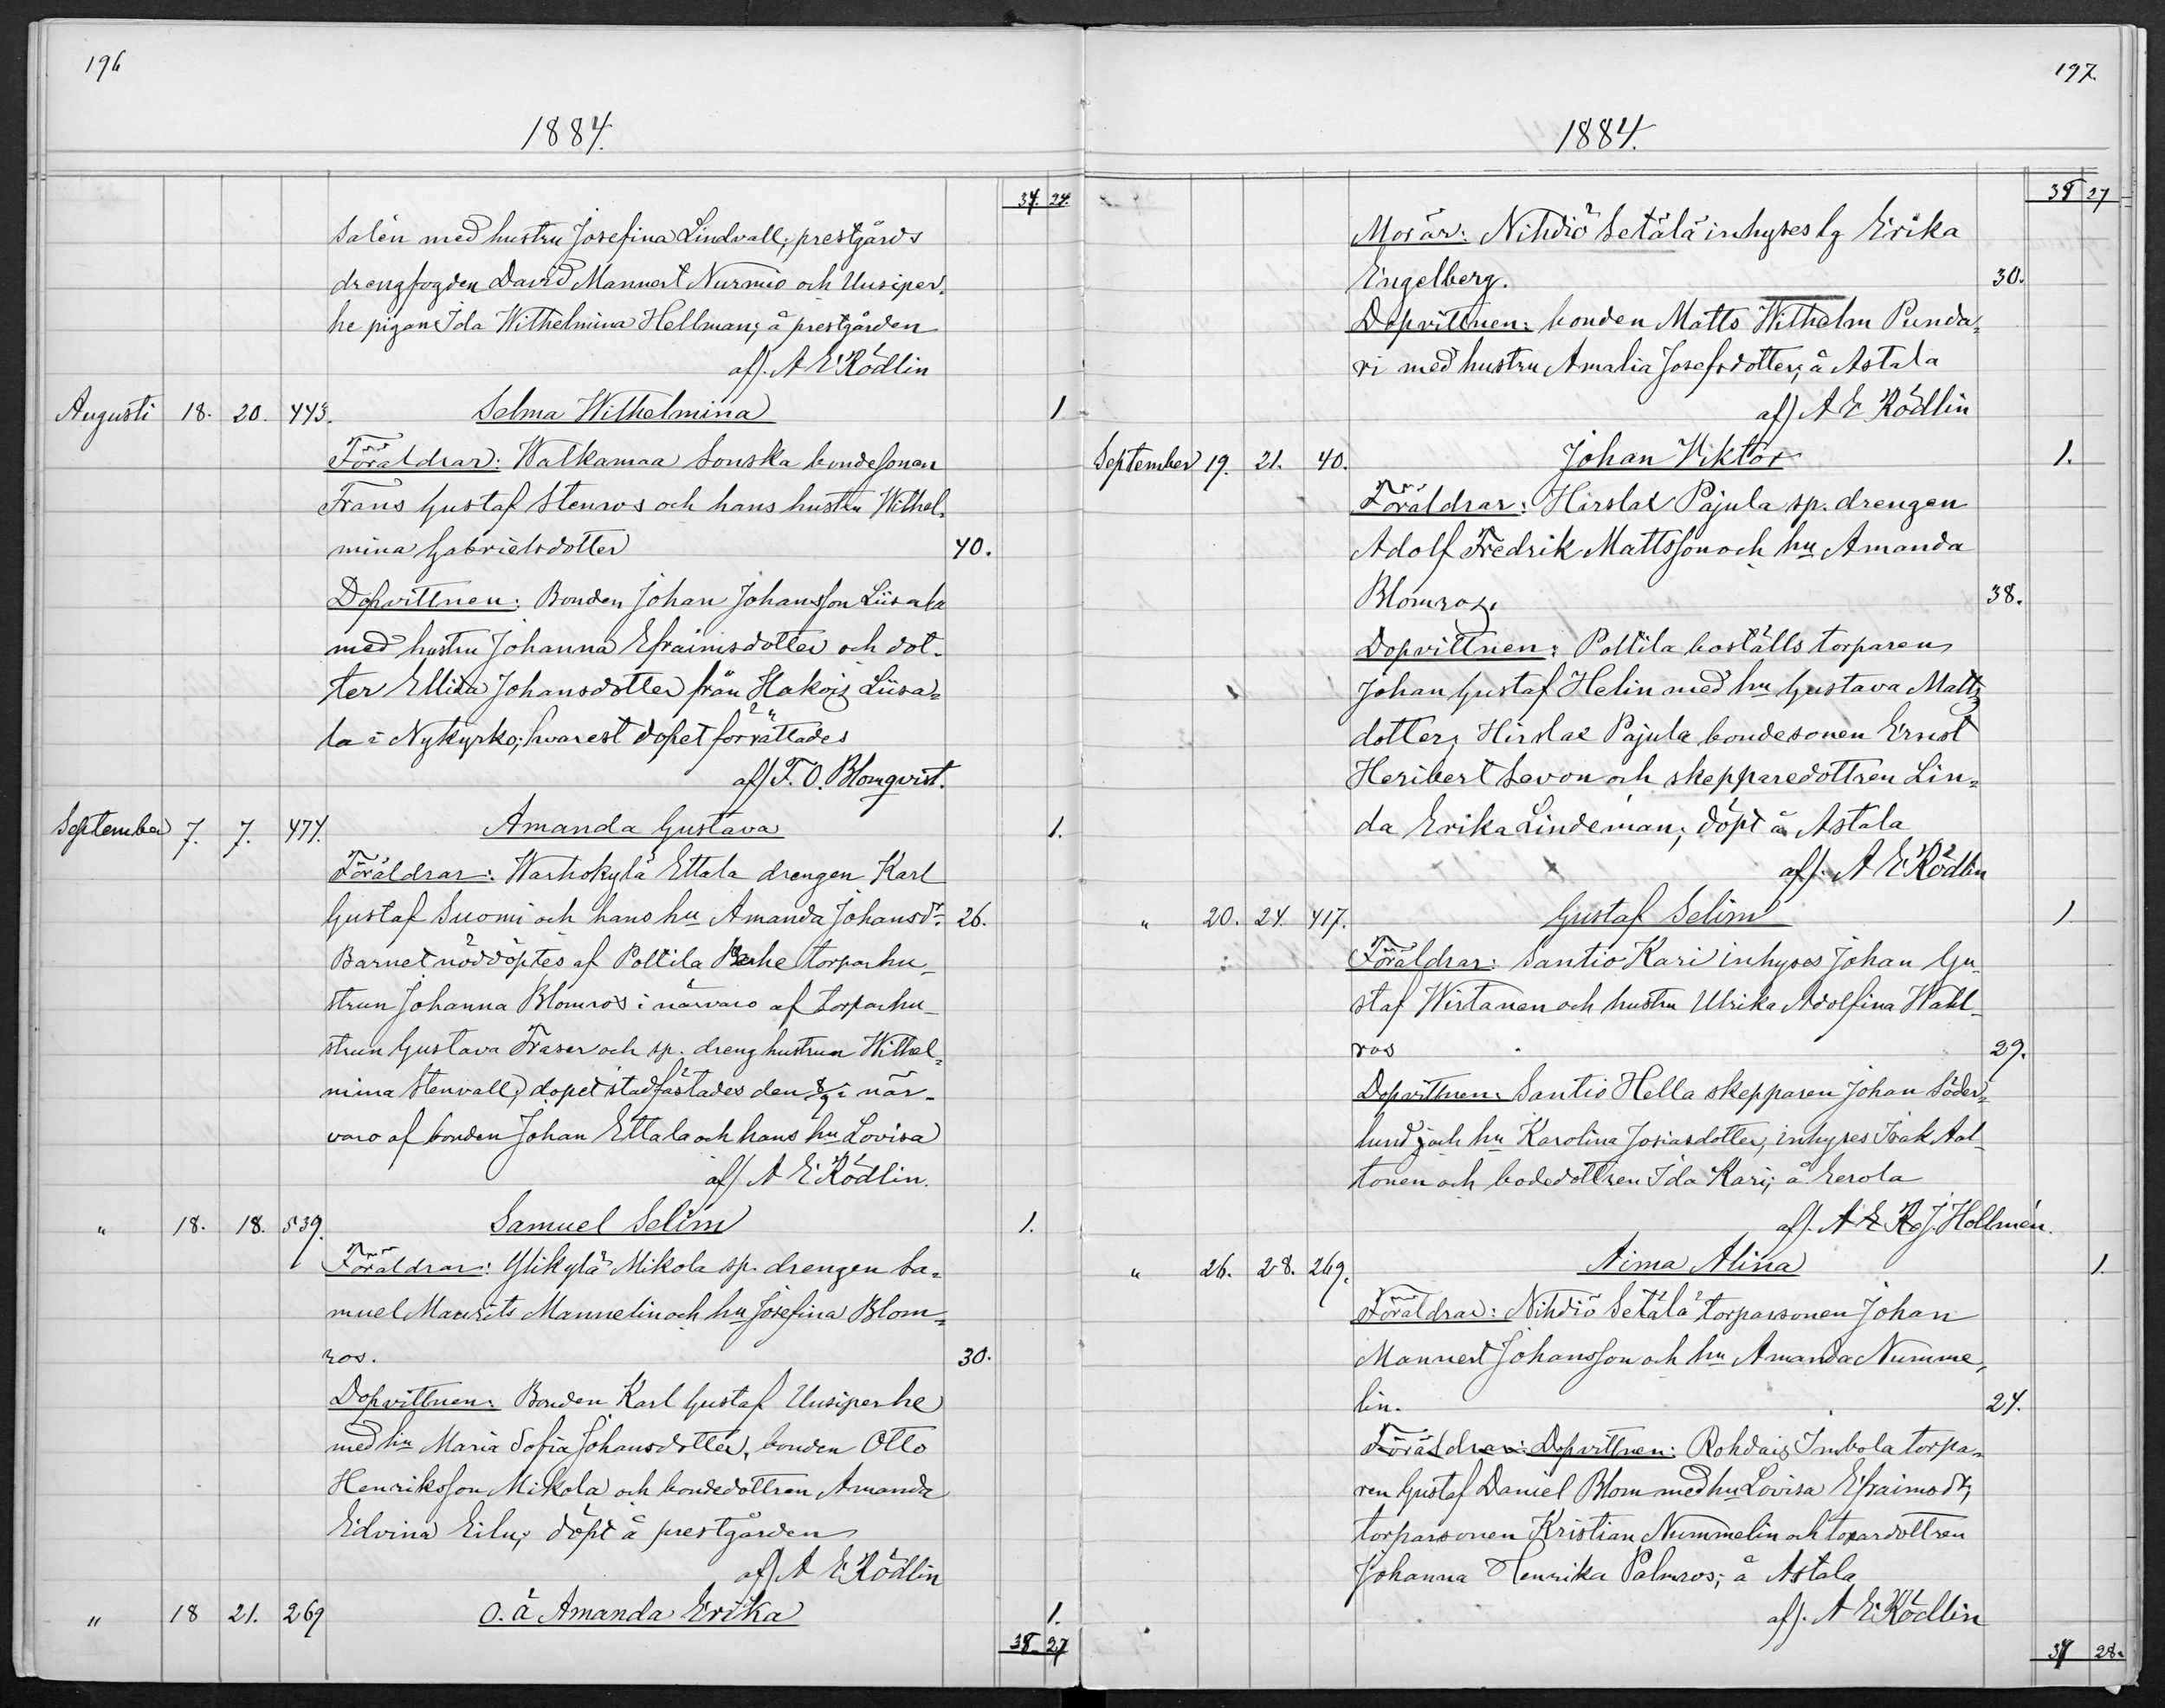 196
1884.
34. 24.
Salén med hustru Josefina Lindvall; prestgårds
drengfogden David Mannert Nurmio och Uusiper-
he pigan Ida Wilhelmina Hellman; å prestgården
af/. A E Rödlin
Augusti 18. 20. 443. Selma Wilhelmina 1
Föräldrar: Walkamaa Souska bondesonen
Frans Gustaf Stenros och hans hustru Wilhel-
mina Gabrielsdotter 40.
Dopvittnen: Bonden Johan Johansson Liisala
med hustru Johanna Efraimsdotter och dot-
ter Ellida Johansdotter från Hakois Liisa-
la i Nykyrko; hvarest dopet förrättades
af/ F. O. Blomqvist.
September 7. 7. 474. Amanda Gustava 1.
Föräldrar: Warhokylä Ettala drengen Karl
Gustaf Suomi och hans hu Amanda Johansdr 26.
Barnet nöddöptes af Poltila Perhe torparhu-
strun Johanna Blomros i närvaro af torparhu-
strun Gustava Fraser och sp. dreng hustrun Wilhel-
mina Stenvall; dopet stadfästades den 8/9 i när-
varo af bonden Johan Ettala och hans hu Lovisa
af/ A E Rödlin.
" 18. 18. 539. Samuel Selim 1.
Föräldrar: Ylikylä Mikola sp. drengen Sa-
muel Maurits Mannelin och hu Josefina Blom-
ros. 30.
Dopvittnen: Bonden Karl Gustaf Uusiperhe
med hu Maria Sofia Johansdotter, bonden Otto
Henriksson Mikola och bondedottren Amanda
Edvina Eilu; döpt å prestgården
af/ A E Rödlin
" 18 21. 269 O. ä Amanda Erika 1.
38. 27
197.
1884.
38 27
Mor är: Nihdiö Setälä inhyses lg Erika
Engelberg. 30.
Dopvittnen: bonden Matts Wilhelm Punda-
ri med hustru Amalia Josefsdotter; å Astala
af/ A E Rödlin
September 19. 21. 40. Johan Viktor 1.
Föräldrar: Hirslax Pajula sp. drengen
Adolf Fredrik Mattsson och hu Amanda
Blomros. 38.
Dopvittnen: Poltila boställs torparen
Johan Gustaf Helin med hu Gustava Matts
dotter; Hirslax Pajula bondesonen Ernst
Heribert Savon och skepparedottren Lin-
da Erika Lindeman; döpt å Astala
af/. A E Rödlin
" 20. 24. 417. Gustaf Selim 1
Föräldrar: Santio Kari inhyses Johan Gu-
staf Wirtanen och hustru Ulrika Adolfina Wahl-
ros 29.
Dopvittnen: Santio Hella skepparen Johan Söder-
lund och hu Karolina Josiasdotter, inhyses Isak Aal-
tonen och bodedottren Ida Kari; å Eerola
af/. A E R J. Hollmén.
" 26. 28. 269. Aima Alina 1.
Föräldrar: Nihdiö Setälä torparsonen Johan
Mannert Johansson och hu Amanda Numme-
lin. 24.
Föräldrar: Dopvittnen: Rohdais Imbola torpa-
ren Gustaf Daniel Blom med hu Lovisa Efraimsdr;
torparsonen Kristian Nummelin och torardottren
Johanna Henrika Palmros; å Astala
af/. A E Rödlin
39 28.